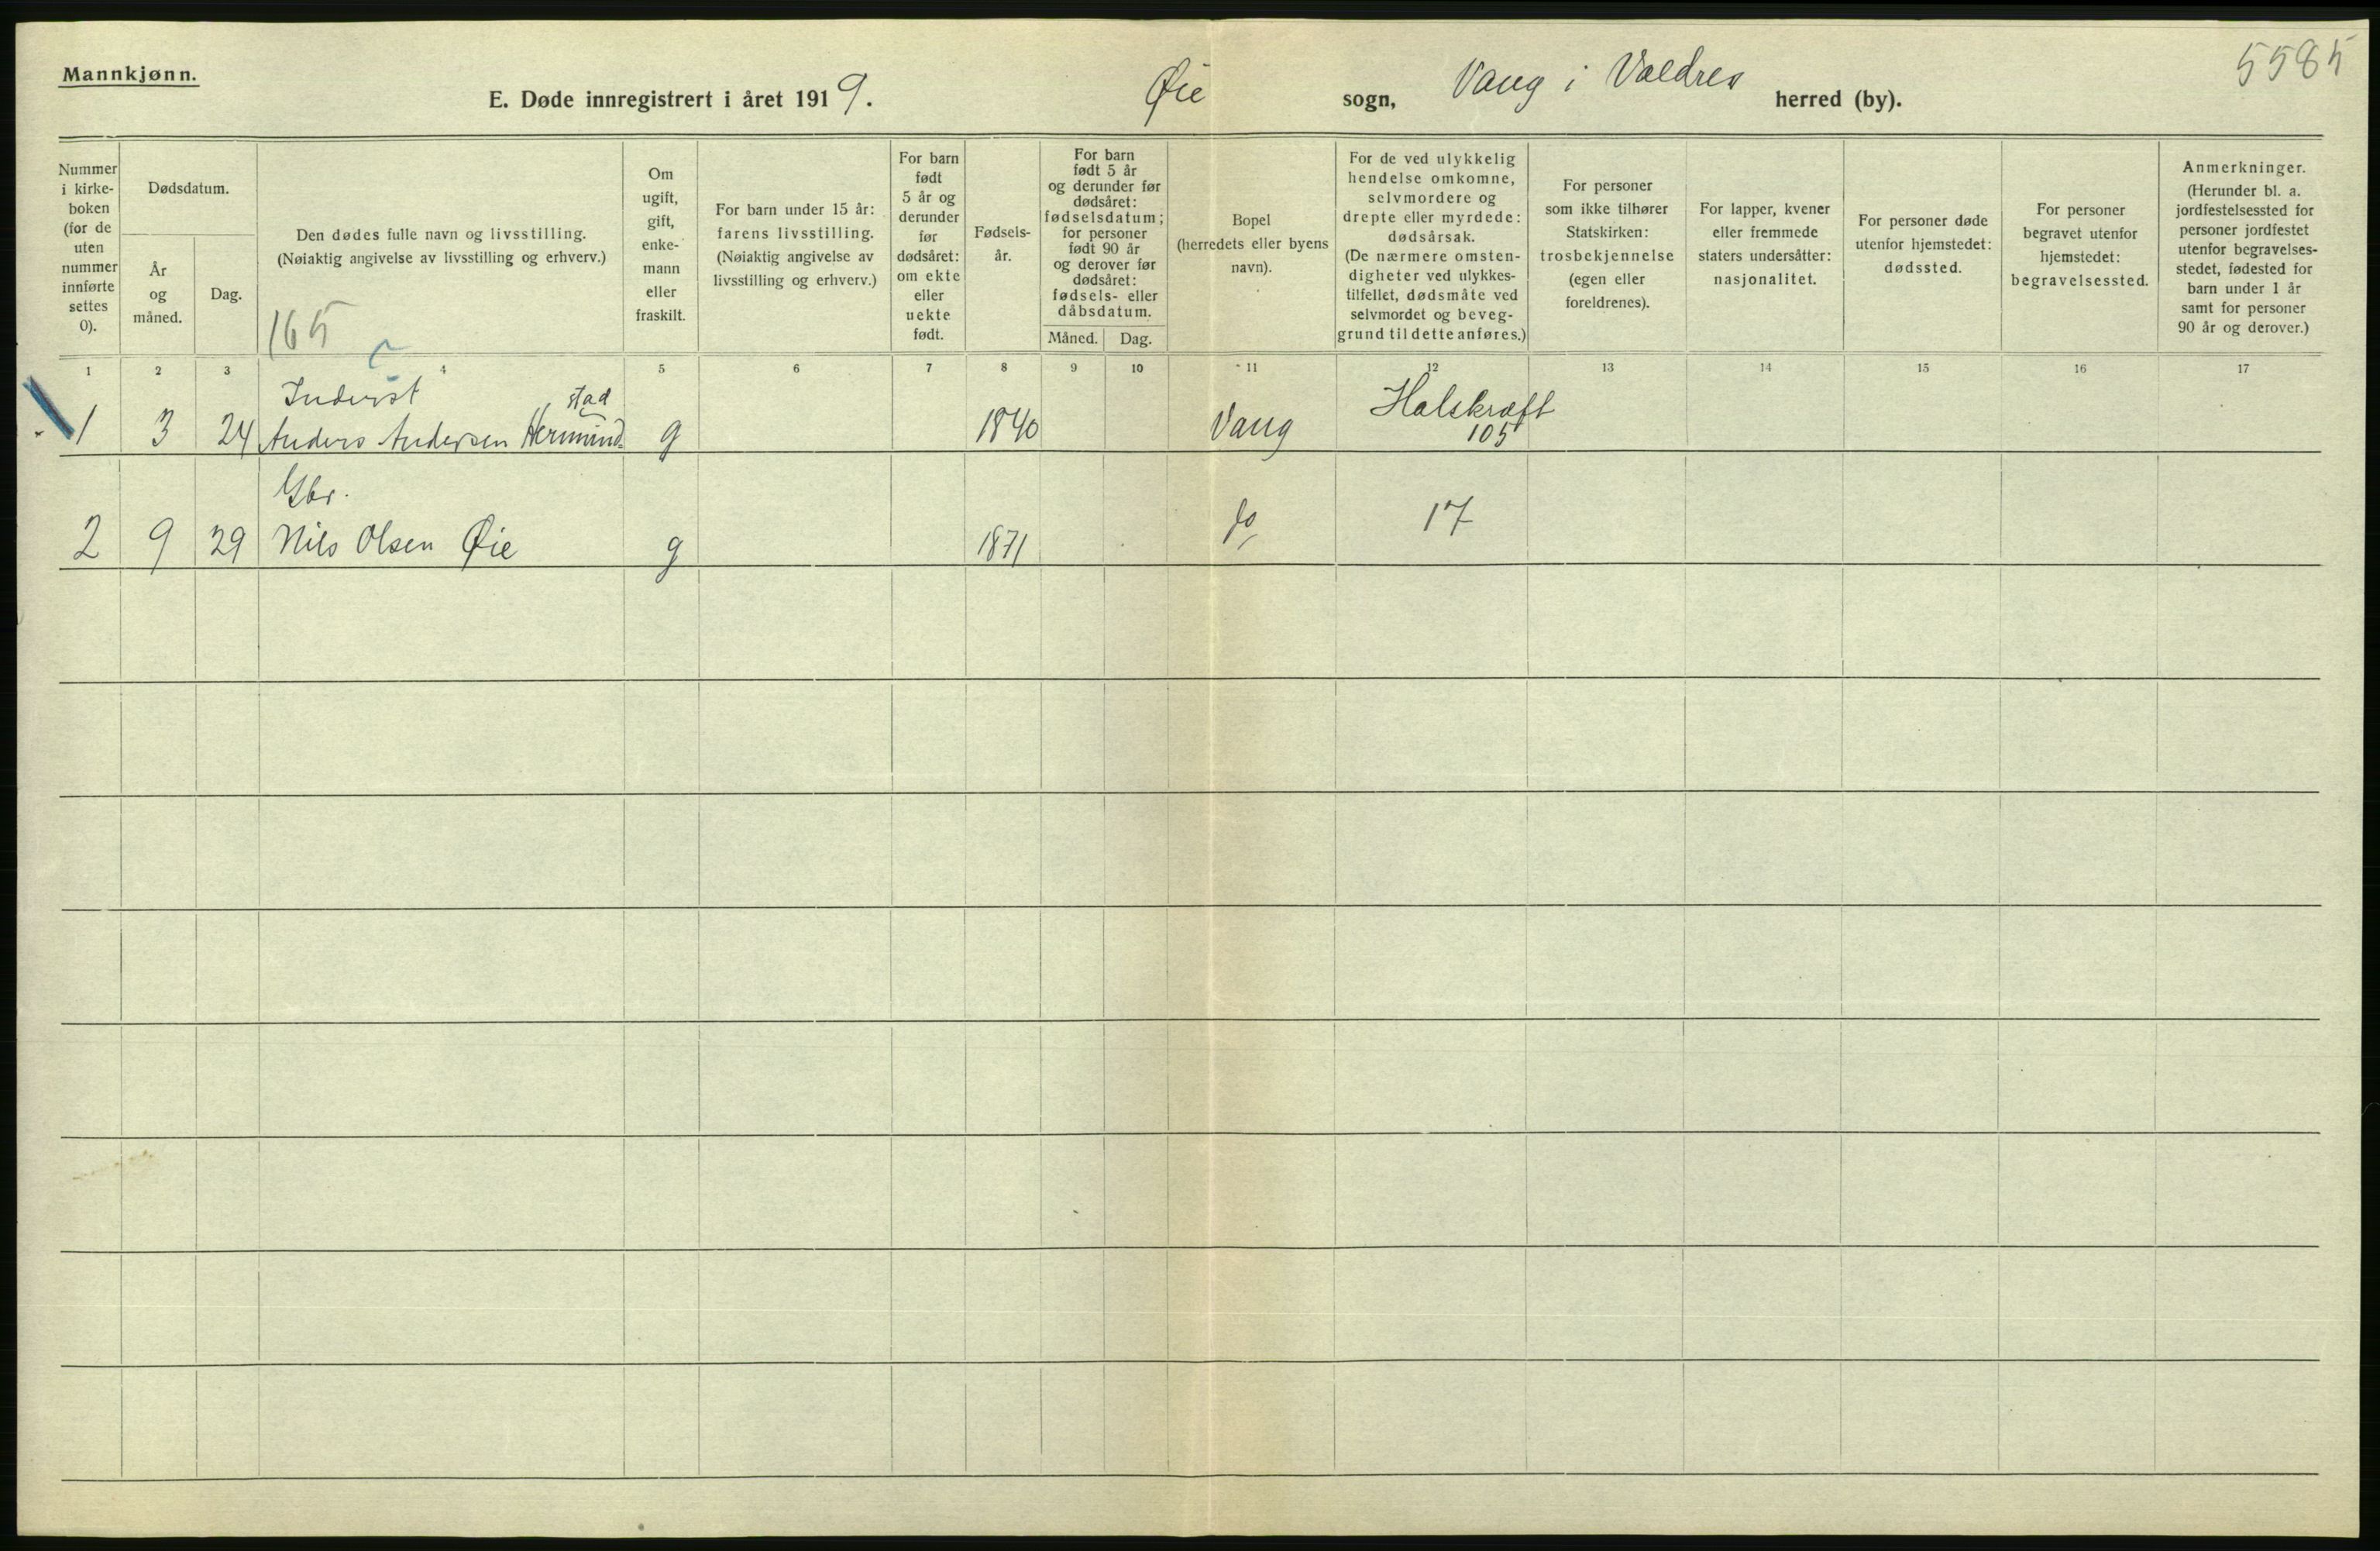 Mannkjønn.
5585
E. Døde innregistrert i året 1919. Øie sogn, Vang i Valdres herred (by).
Nummer
i kirke-
boken
(for de
uten
nummer
innførte
settes
0).
Dødsdatum.
År
og
måned.
Dag.
Den dødes fulle navn og livsstilling.
(Nøiaktig angivelse av livsstilling og erhverv.)
165
Om
ugift,
gift,
enke-
mann
eller
fraskilt.
For barn under 15 år:
farens livsstilling.
(Nøiaktig angivelse av
livsstilling og erhverv.)
For barn
født
5 år og
derunder
før
dødsåret:
om ekte
eller
uekte
født.
Fødsels-
år.
For barn
født 5 år
og derunder før
dødsåret:
fødselsdatum;
for personer
født 90 år
og derover før
dødsåret:
fødsels- eller
dåbsdatum.
Måned. Dag.
Bopel
(herredets eller byens
navn).
For de ved ulykkelig
hendelse omkomne,
selvmordere og
drepte eller myrdede:
dødsårsak.
(De nærmere omsten-
digheter ved ulykkes-
tilfellet, dødsmåte ved
selvmordet og beveg-
grund til dette anføres.)
For personer
som ikke tilhører
Statskirken:
trosbekjennelse
(egen eller
foreldrenes).
For lapper, kvener
eller fremmede
staters undersåtter:
nasjonalitet.
For personer døde
utenfor hjemstedet:
dødssted.
For personer
begravet utenfor
hjemstedet:
begravelsessted.
Anmerkninger.
(Herunder bl. a.
jordfestelsessted for
personer jordfestet
utenfor begravelses-
stedet, fødested for
barn under 1 år
samt for personer
90 år og derover.)
1 2 3 4 5 6 7 8 9 10 11 12 13 14 15 16 17
Inderst stad Halskræft
1 3 24 Anders Andersen Hermund- g 1840 Vang 105
Gbr.
2 9 29 Nils Olsen Øie g 1871 do 17